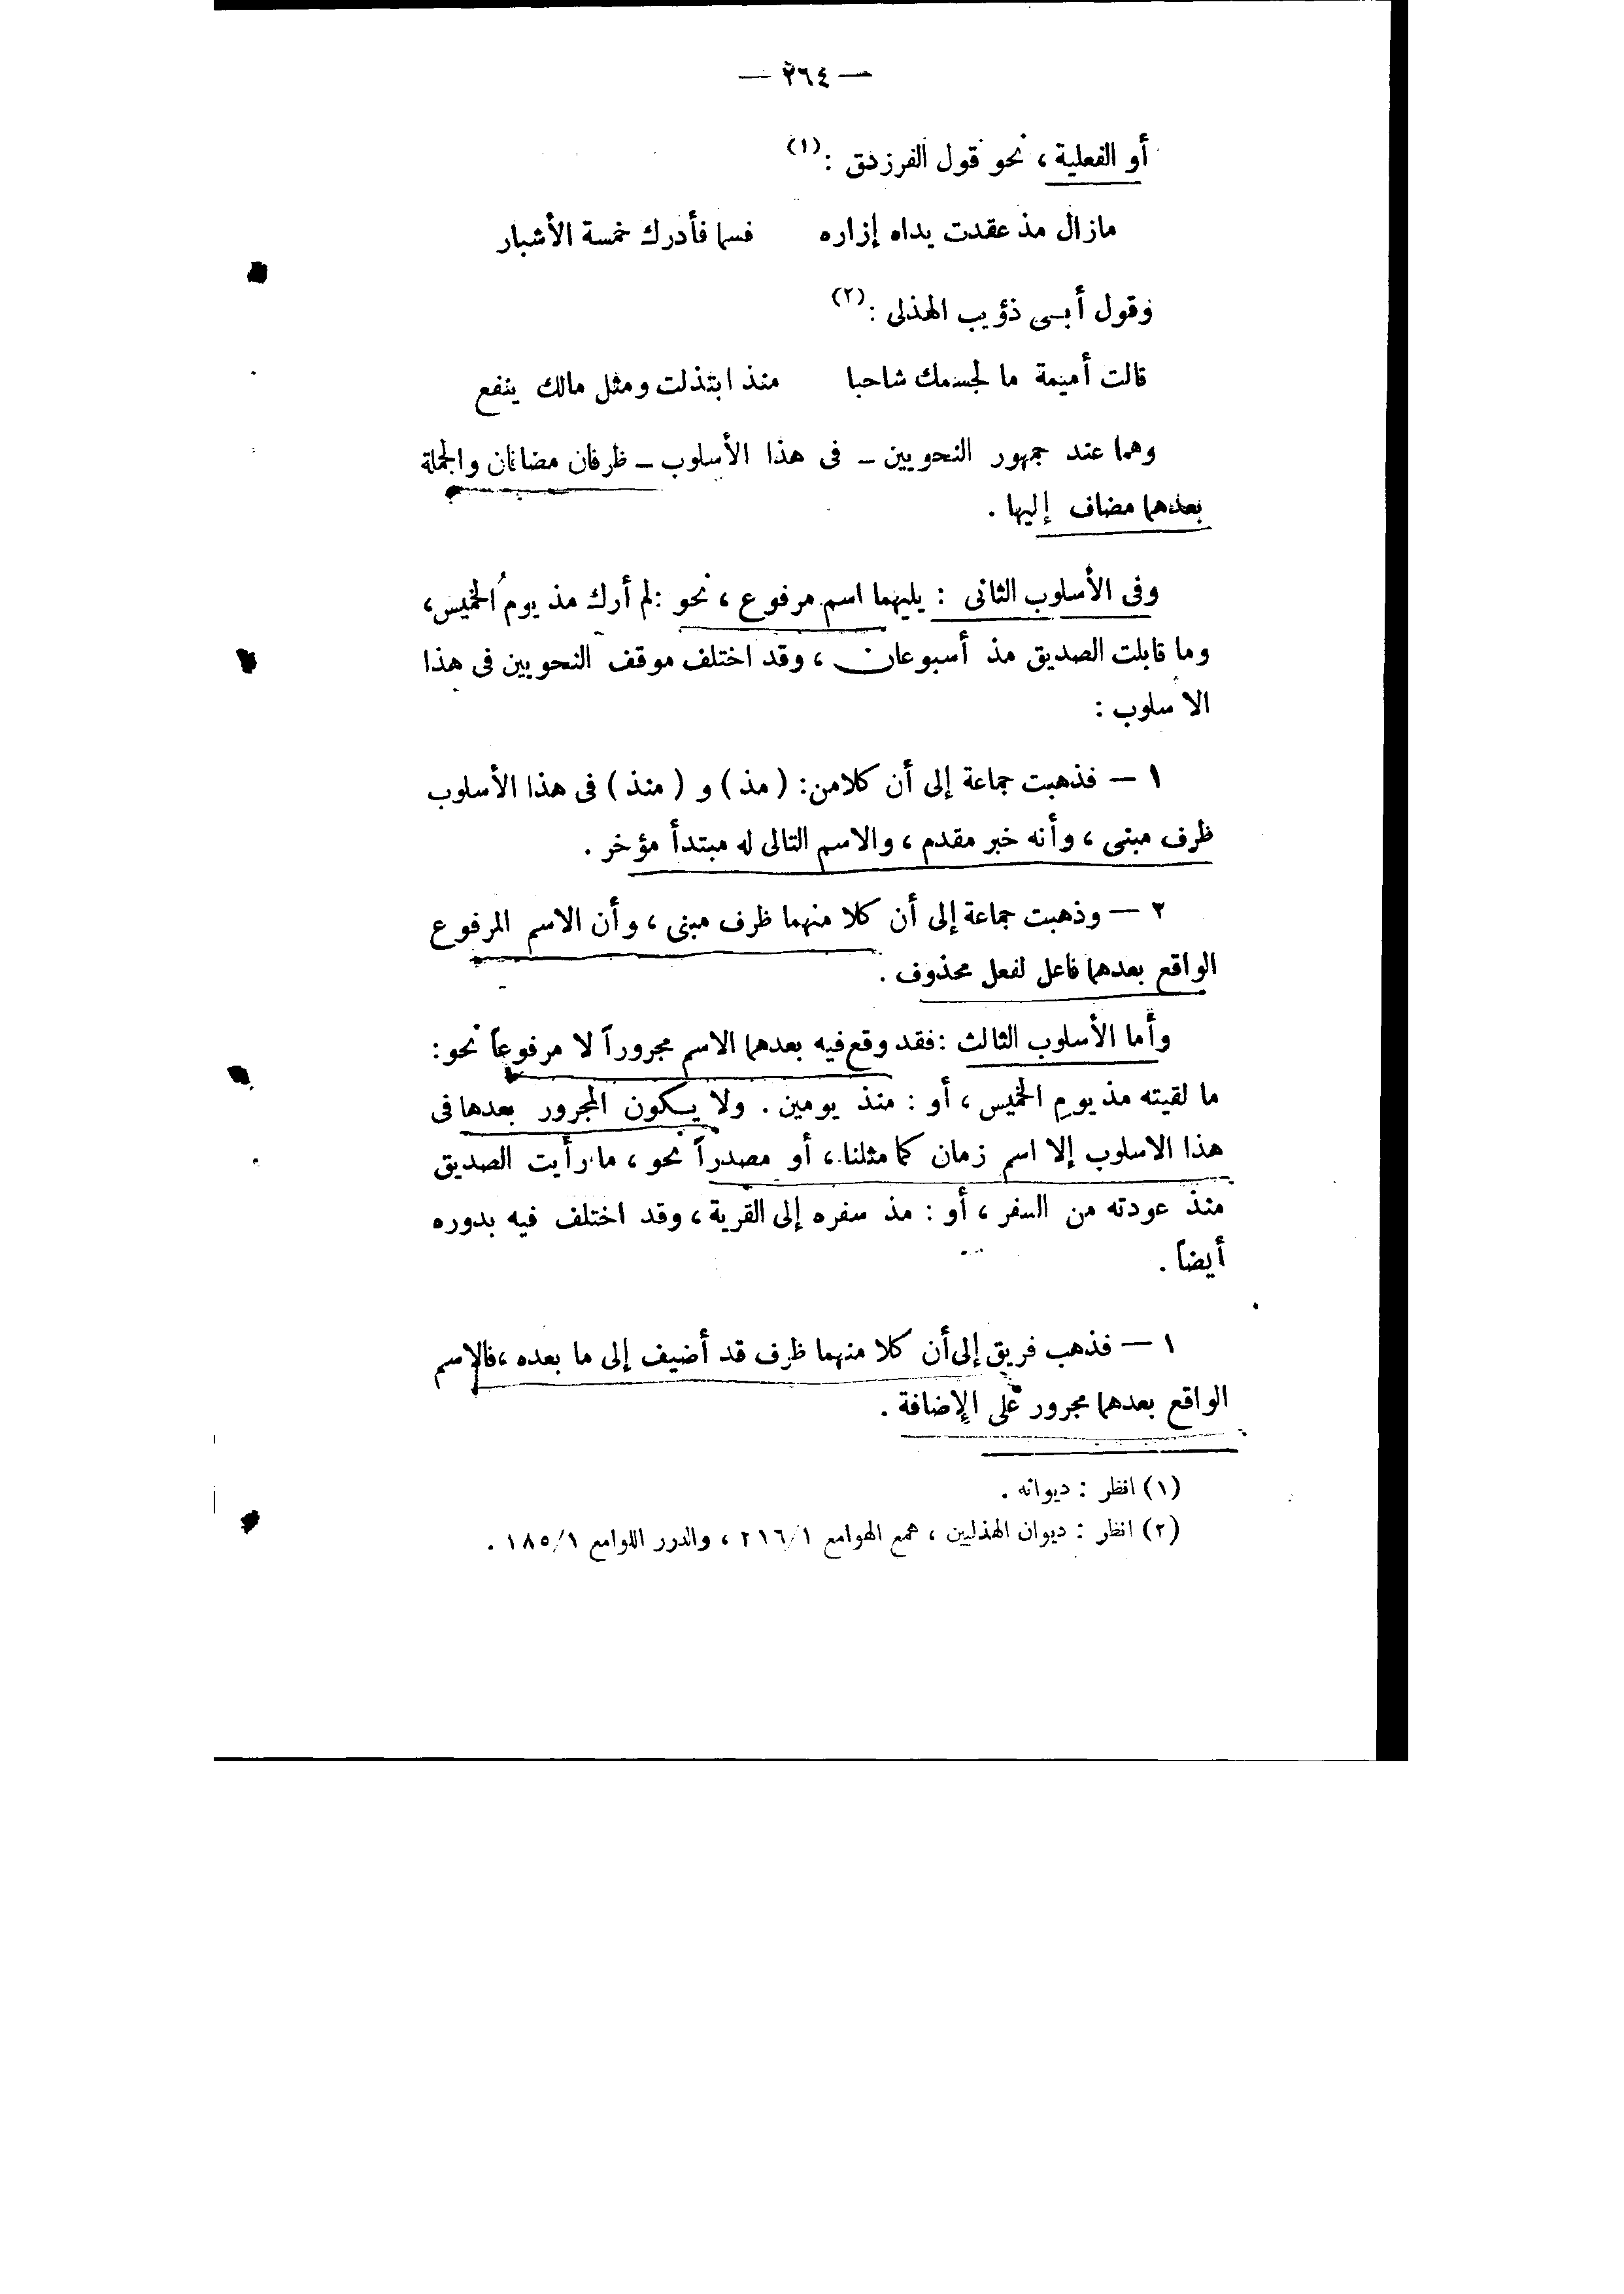 — ٢٦٤ —
أو الفعلية ، نحو قول الفرزدق : (١)
مازال مذ عقدت يداه إزاره فسما فأدرك خمسة الأشبار
وقول أبى ذؤيب الهذلى : (٢)
قالت أميمة ما لجسمك شاحبا منذ ابتذلت ومثل مالك ينفع
وهما عند جمهور النحويين – فى هذا الأسلوب – ظرفان مضافان والجملة
بعدهما مضاف إليها .
وفى الأسلوب الثانى : يليهما اسم مرفوع ، نحو : لم أرك مذ يومُ الخميس ،
وما قابلت الصديق مذ أسبوعان ، وقد اختلف موقف النحويين فى هذا
الأسلوب :
١ — فذهبت جماعة إلى أن كلا من : ( مذ ) و ( منذ ) فى هذا الأسلوب
ظرف مبنى ، وأنه خبر مقدم ، والاسم التالى له مبتدأ مؤخر .
٢ — وذهبت جماعة إلى أن كلا منهما ظرف مبنى ، وأن الاسم المرفوع
الواقع بعدهما فاعل لفعل محذوف .
وأما الأسلوب الثالث : فقد وقع فيه بعدهما الاسم مجروراً لا مرفوعاً نحو :
ما لقيته مذ يومِ الخميس ، أو : منذ يومين . ولا يكون المجرور بعدها فى
هذا الاسلوب إلا اسم زمان كما مثلنا ، أو مصدراً نحو ، ما رأيت الصديق
منذ عودته من السفر ، أو : مذ سفره إلى القرية ، وقد اختلف فيه بدوره
أيضاً .
١ — فذهب فريق إلى أن كلا منهما ظرف قد أضيف إلى ما بعده ، فالاسم
الواقع بعدهما مجرور على الإضافة .
(١) انظر : ديوانه .
(٢) انظر : ديوان الهذليين ، همع الهوامع ٢١٦/١ ، والدرر اللوامع ١٨٥/١ .